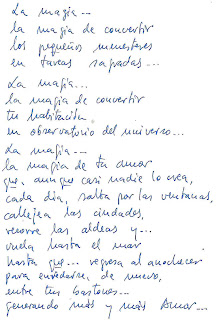 La magia...
la magia de convertir
los pequeños menesteres
en tareas sagradas...
La magia...
la magia de convertir
tu habitación
en observatorio del universo...
La magia...
la magia de tu amor
que, aunque casi nadie lo crea,
cada día, salta por las ventanas,
callejea las ciudades,
recorre las aldeas y...
vuela hasta el mar
hasta que... regresa al anochecer
para enredarse, de nuevo,
entre tus bastones...
generando más y más Amor...